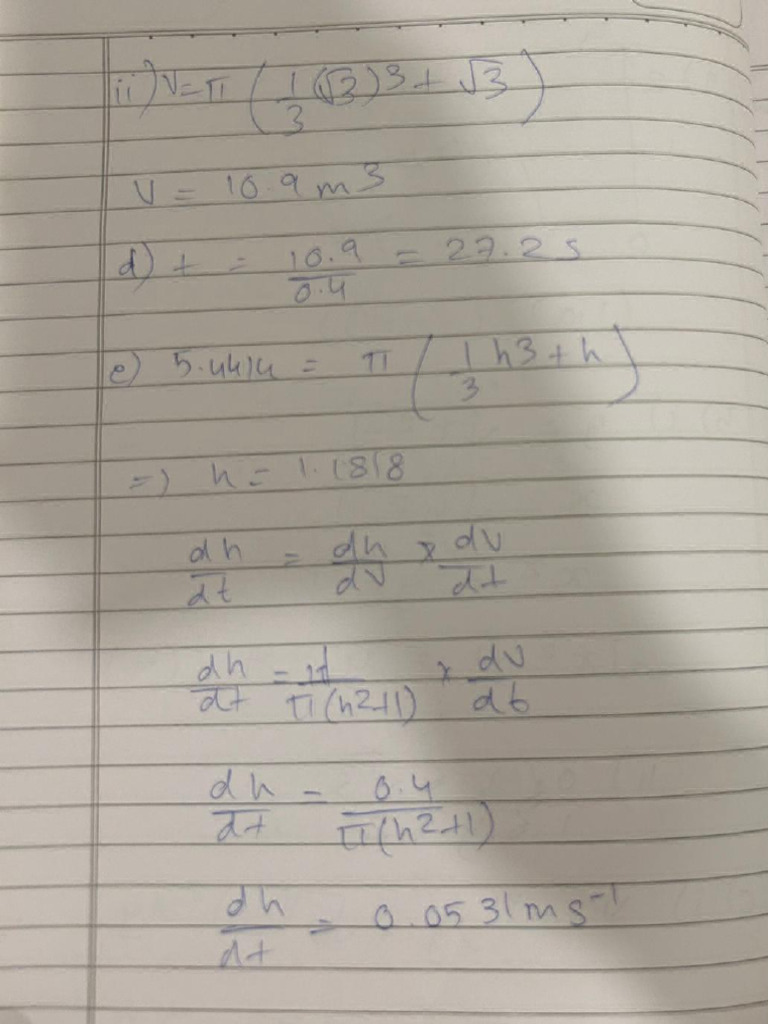 ii) V = π (1/3 (√3)3 + √3)
V = 10.9 m3
d) t = 10.9/0.4 = 27.2 s
e) 5.4414 = π (1/3 h3 + h)
=) h = 1.1818
dh/dt = dh/dV × dV/dt
dh/dt = 1/π(h2+1) × dV/dt
dh/dt = 0.4/π(h2+1)
dh/dt = 0.0531 m s-1